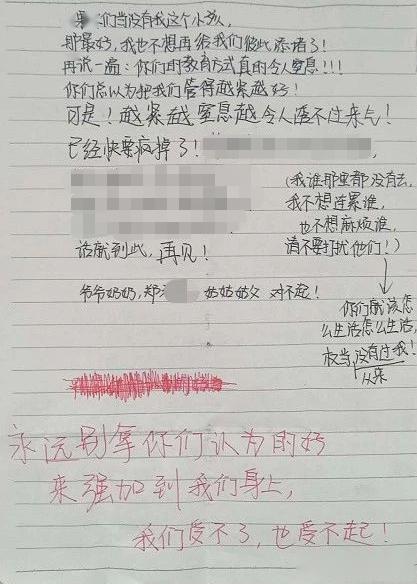 们当没有我这个小孩，
那最好，我也不想再给我们彼此添堵了！
再说一遍：你们的教育方式真的令人窒息！！！
你们总认为把我们管得越紧越好！
可是！越紧越窒息越令人喘不过来气！
已经快要疯掉了！
（我谁那里都没有去，
我不想连累谁，
也不想麻烦谁，
请不要打扰他们！）
话就到此，再见！
爷爷奶奶，郑 姑姑姑父 对不起！
你们就该怎
么生活怎么生活，
权当从来没有过我！
永远别拿你们认为的好
来强加到我们身上，
我们受不了，也受不起！